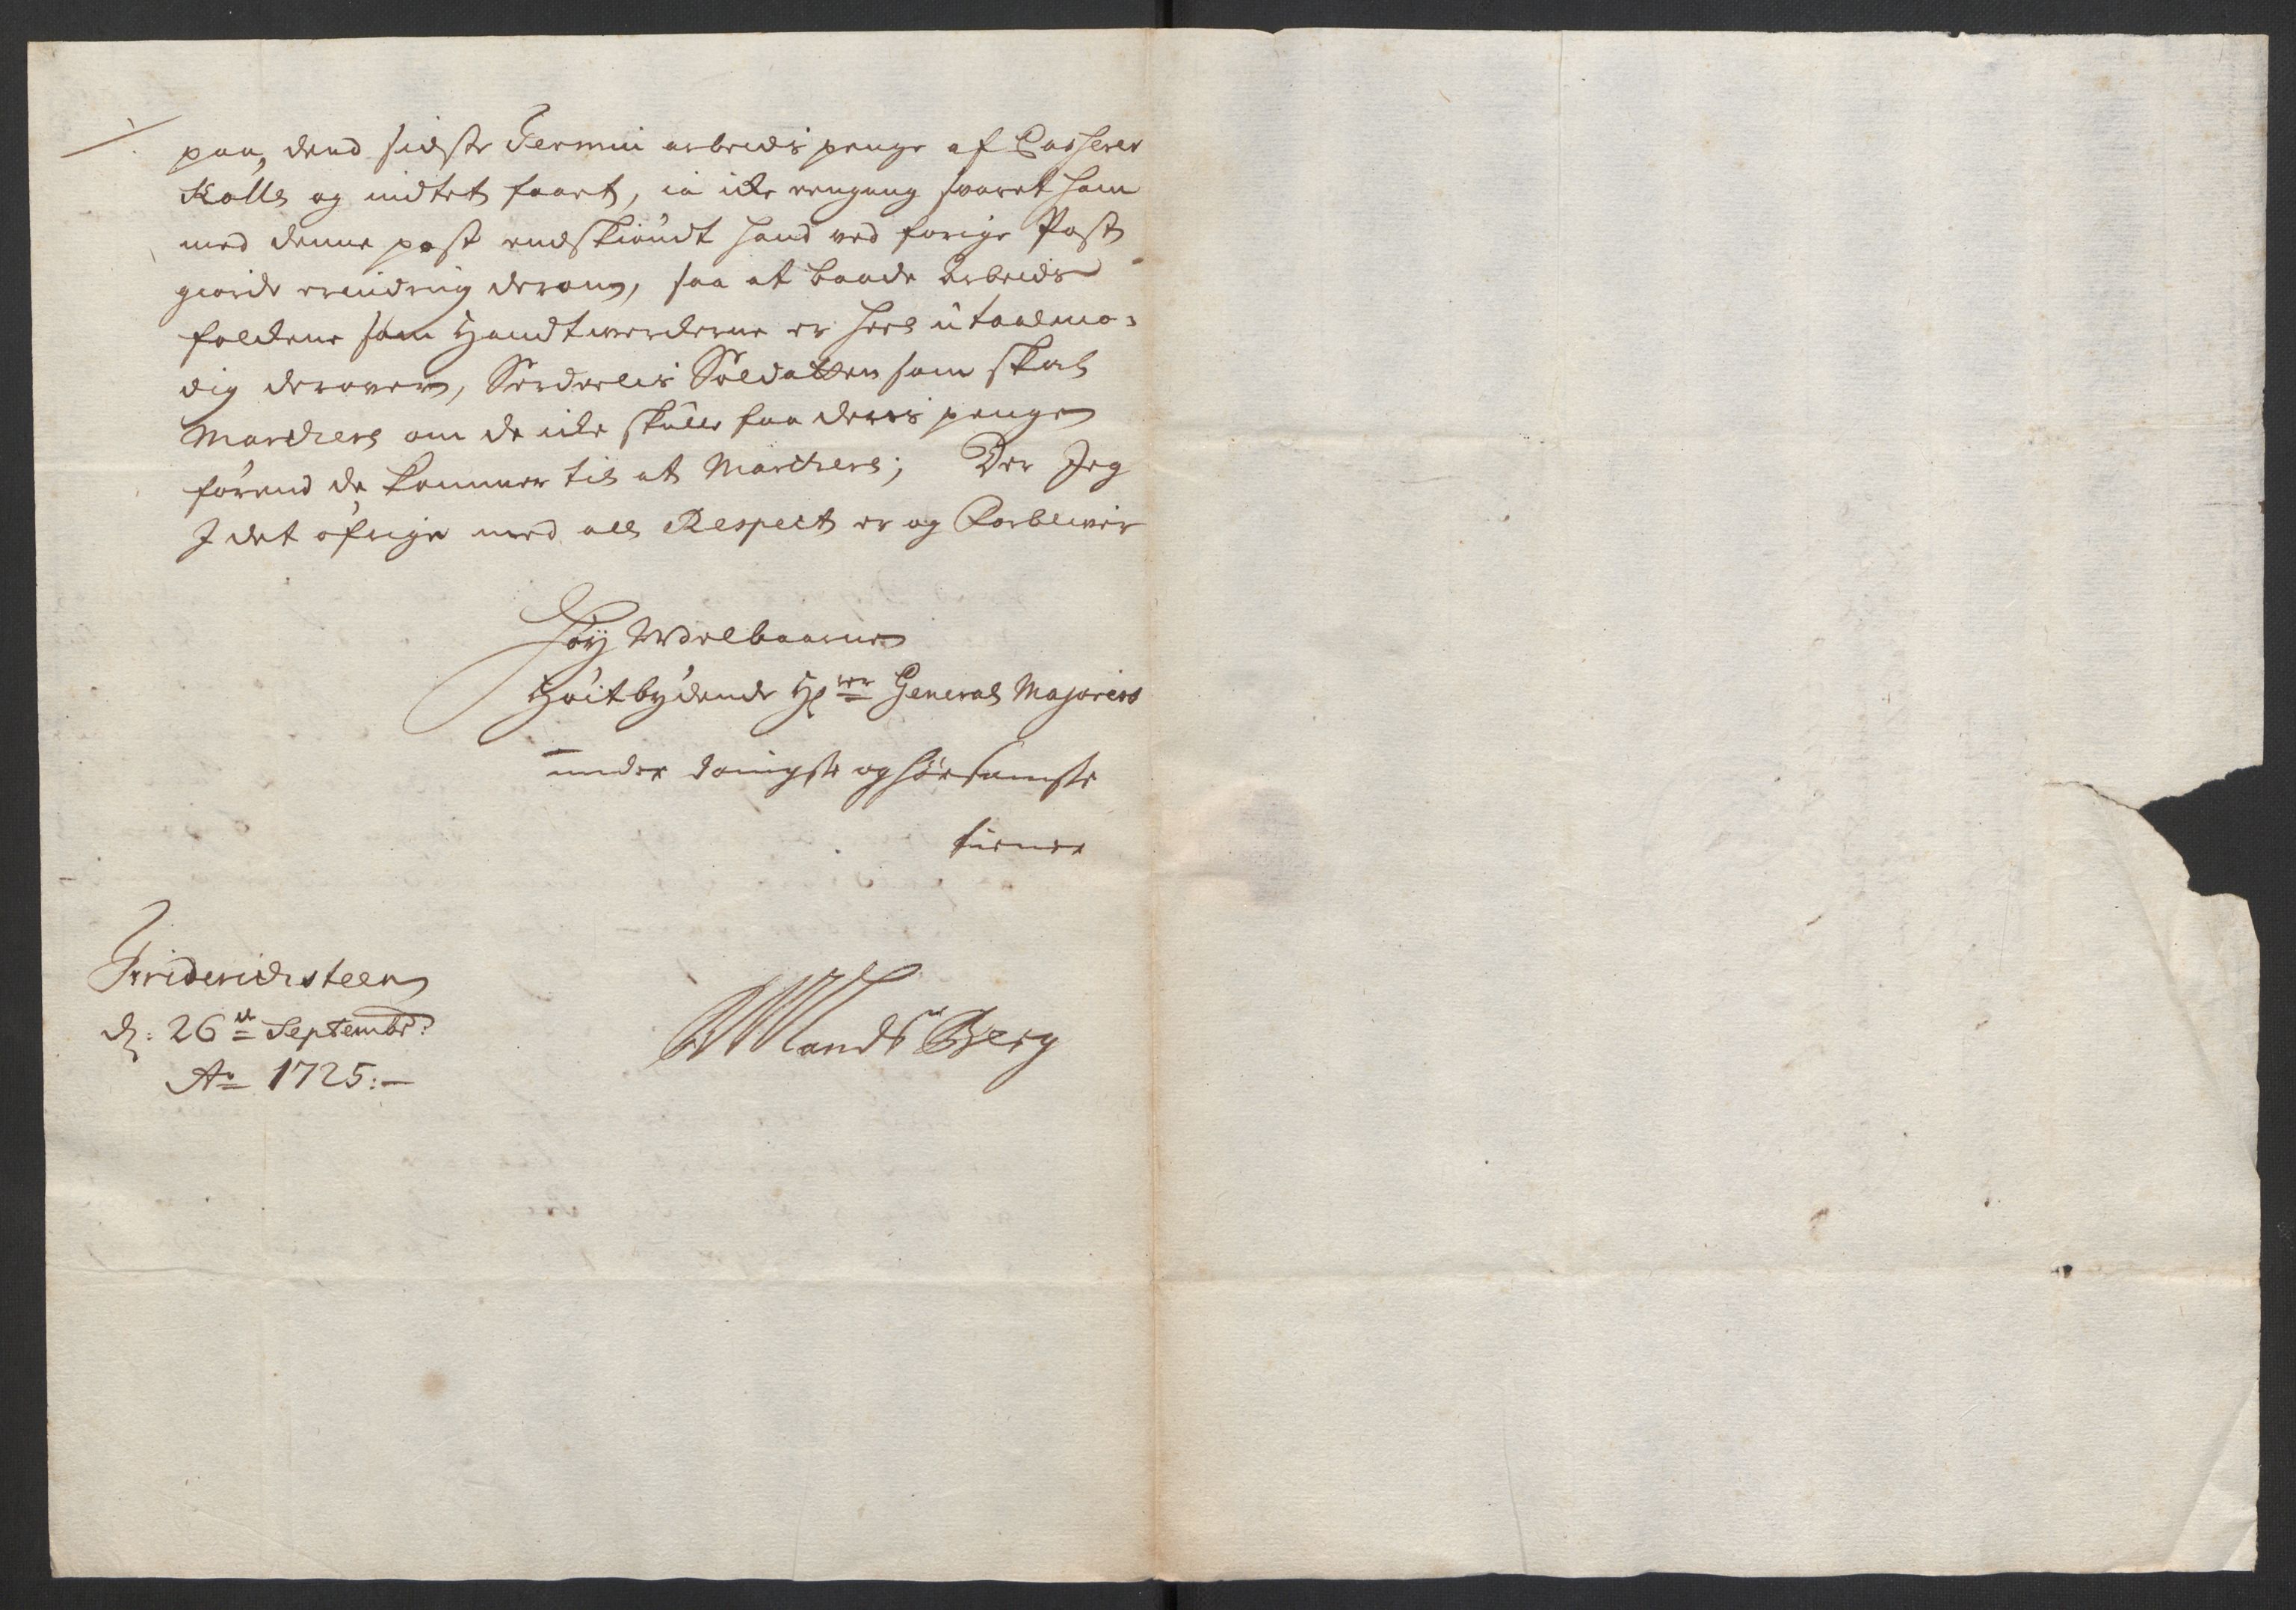 paa, dend sidste Termin arbeids penge af Casserer
Kolle og indtet faaet, ia icke eengang svaret ham
med denne post endskiöndt hand ved forige Post
giorde erindring derom, saa at baade Arbeids
folckene som Handtwerckerne er heel utaalmo-
dig derover, Serdeelis Soldatten som skal
Marchere om de icke skulle faa deris penge
förend de kommer til at Marchere; Der Jeg
J det öfrige med all Respect er og Forblivir
Höy Wdelbaarne
Höitbydende Hr General Majoriss
under danigste og hörsamste
tiener
Friderichsteen
d: 26de Septembr:
Ao 1725:—
Berg